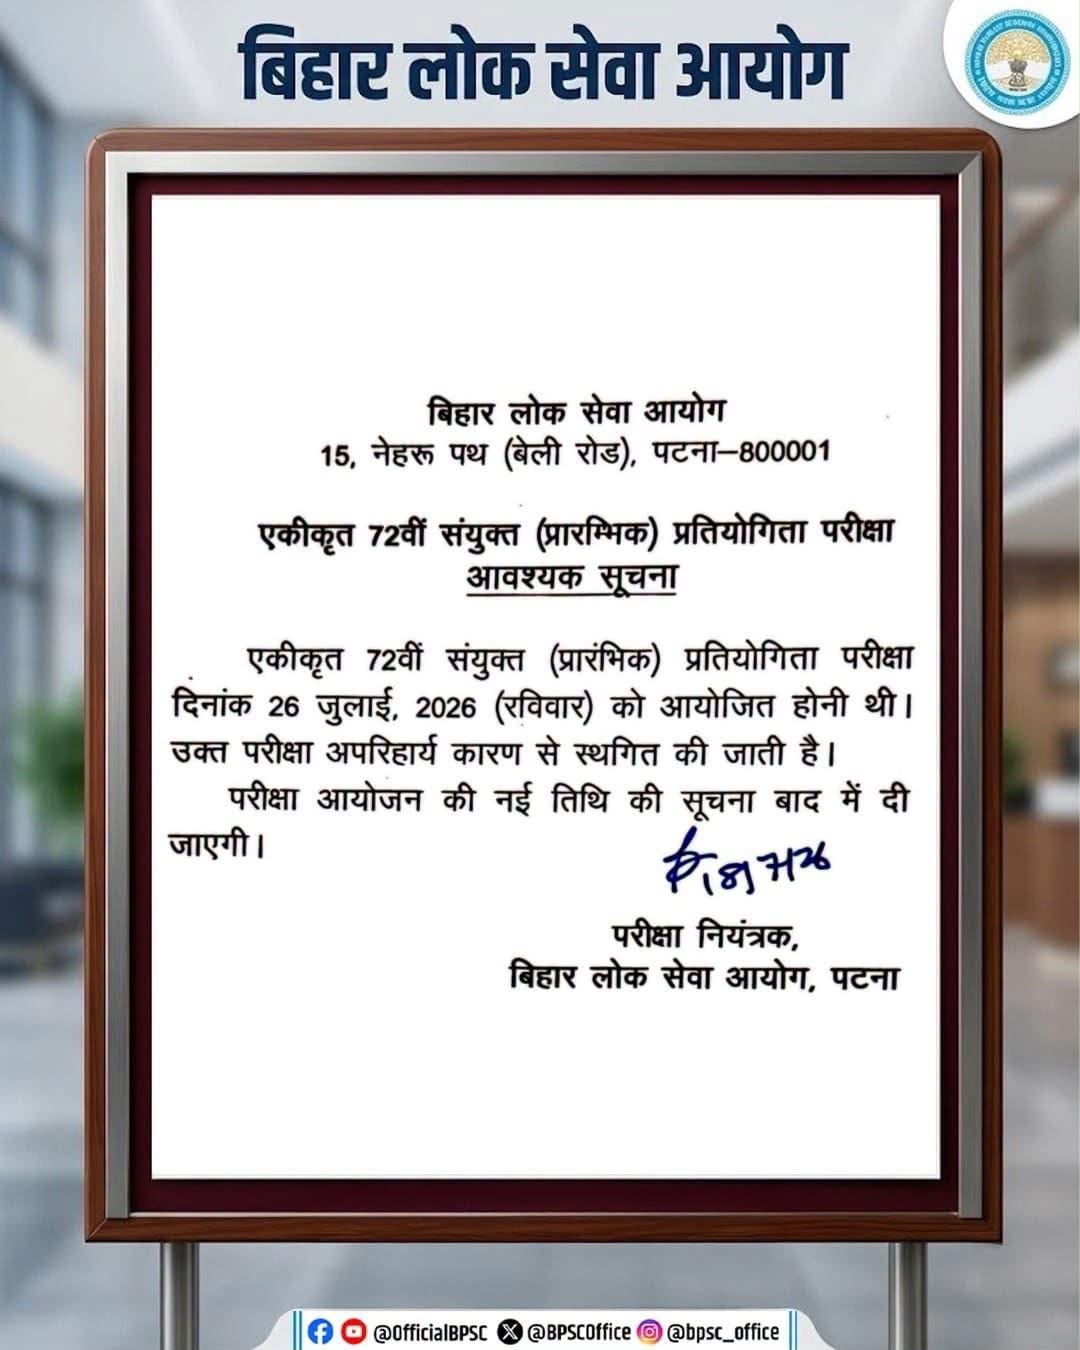 बिहार लोक सेवा आयोग
बिहार लोक सेवा आयोग
15, नेहरू पथ (बेली रोड), पटना–800001
एकीकृत 72वीं संयुक्त (प्रारम्भिक) प्रतियोगिता परीक्षा
आवश्यक सूचना
एकीकृत 72वीं संयुक्त (प्रारंभिक) प्रतियोगिता परीक्षा
दिनांक 26 जुलाई, 2026 (रविवार) को आयोजित होनी थी।
उक्त परीक्षा अपरिहार्य कारण से स्थगित की जाती है।
परीक्षा आयोजन की नई तिथि की सूचना बाद में दी
जाएगी।
परीक्षा नियंत्रक,
बिहार लोक सेवा आयोग, पटना
@OfficialBPSC @BPSCOffice @bpsc_office